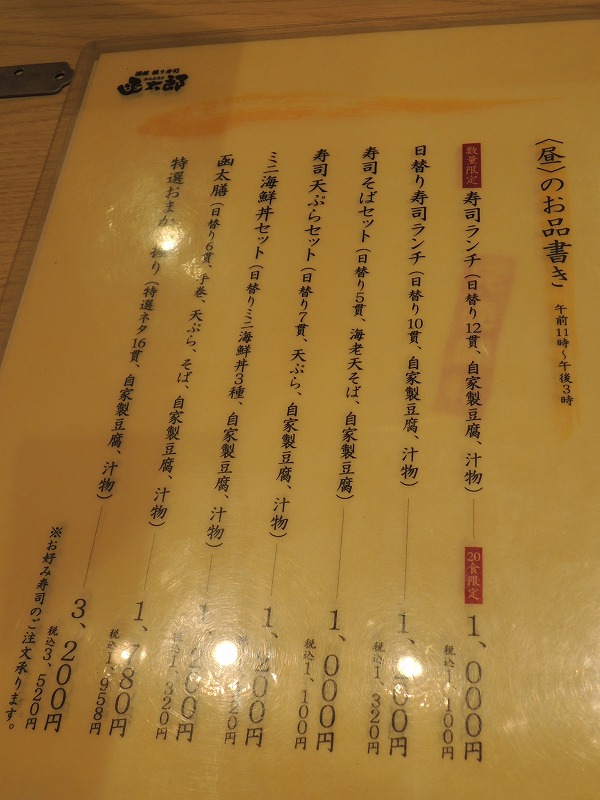 〈昼〉のお品書き 午前11時〜午後3時
数量限定 寿司ランチ（日替り12貫、自家製豆腐、汁物） 20食限定 1,000円
税込1,100円
日替り寿司ランチ（日替り10貫、自家製豆腐、汁物） 1,200円
税込1,320円
寿司そばセット（日替り5貫、海老天そば、自家製豆腐） 1,000円
税込1,100円
寿司天ぷらセット（日替り7貫、天ぷら、自家製豆腐、汁物） 1,200円
税込1,320円
ミニ海鮮丼セット（日替りミニ海鮮丼3種、自家製豆腐、汁物） 1,200円
税込1,320円
函太膳（日替り6貫、手巻、天ぷら、そば、自家製豆腐、汁物） 1,780円
税込1,958円
特選おまかせ握り（特選ネタ16貫、自家製豆腐、汁物） 3,200円
税込3,520円
※お好み寿司のご注文承ります。
函館 握り寿司
かんたろう
函太郎